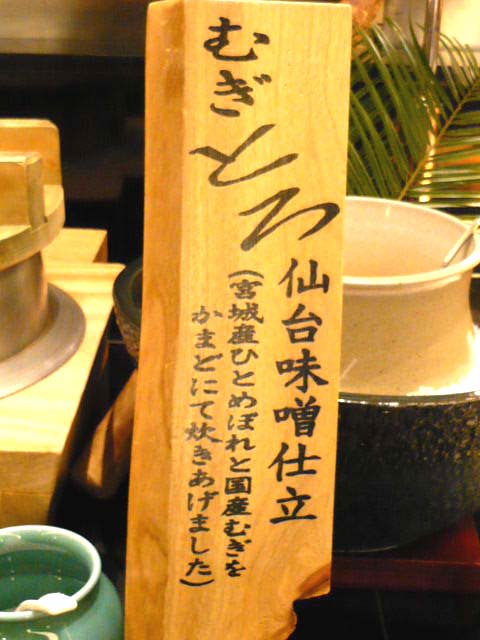 むぎとろ
仙台味噌仕立
(宮城産ひとめぼれと国産むぎを
かまどにて炊きあげました)